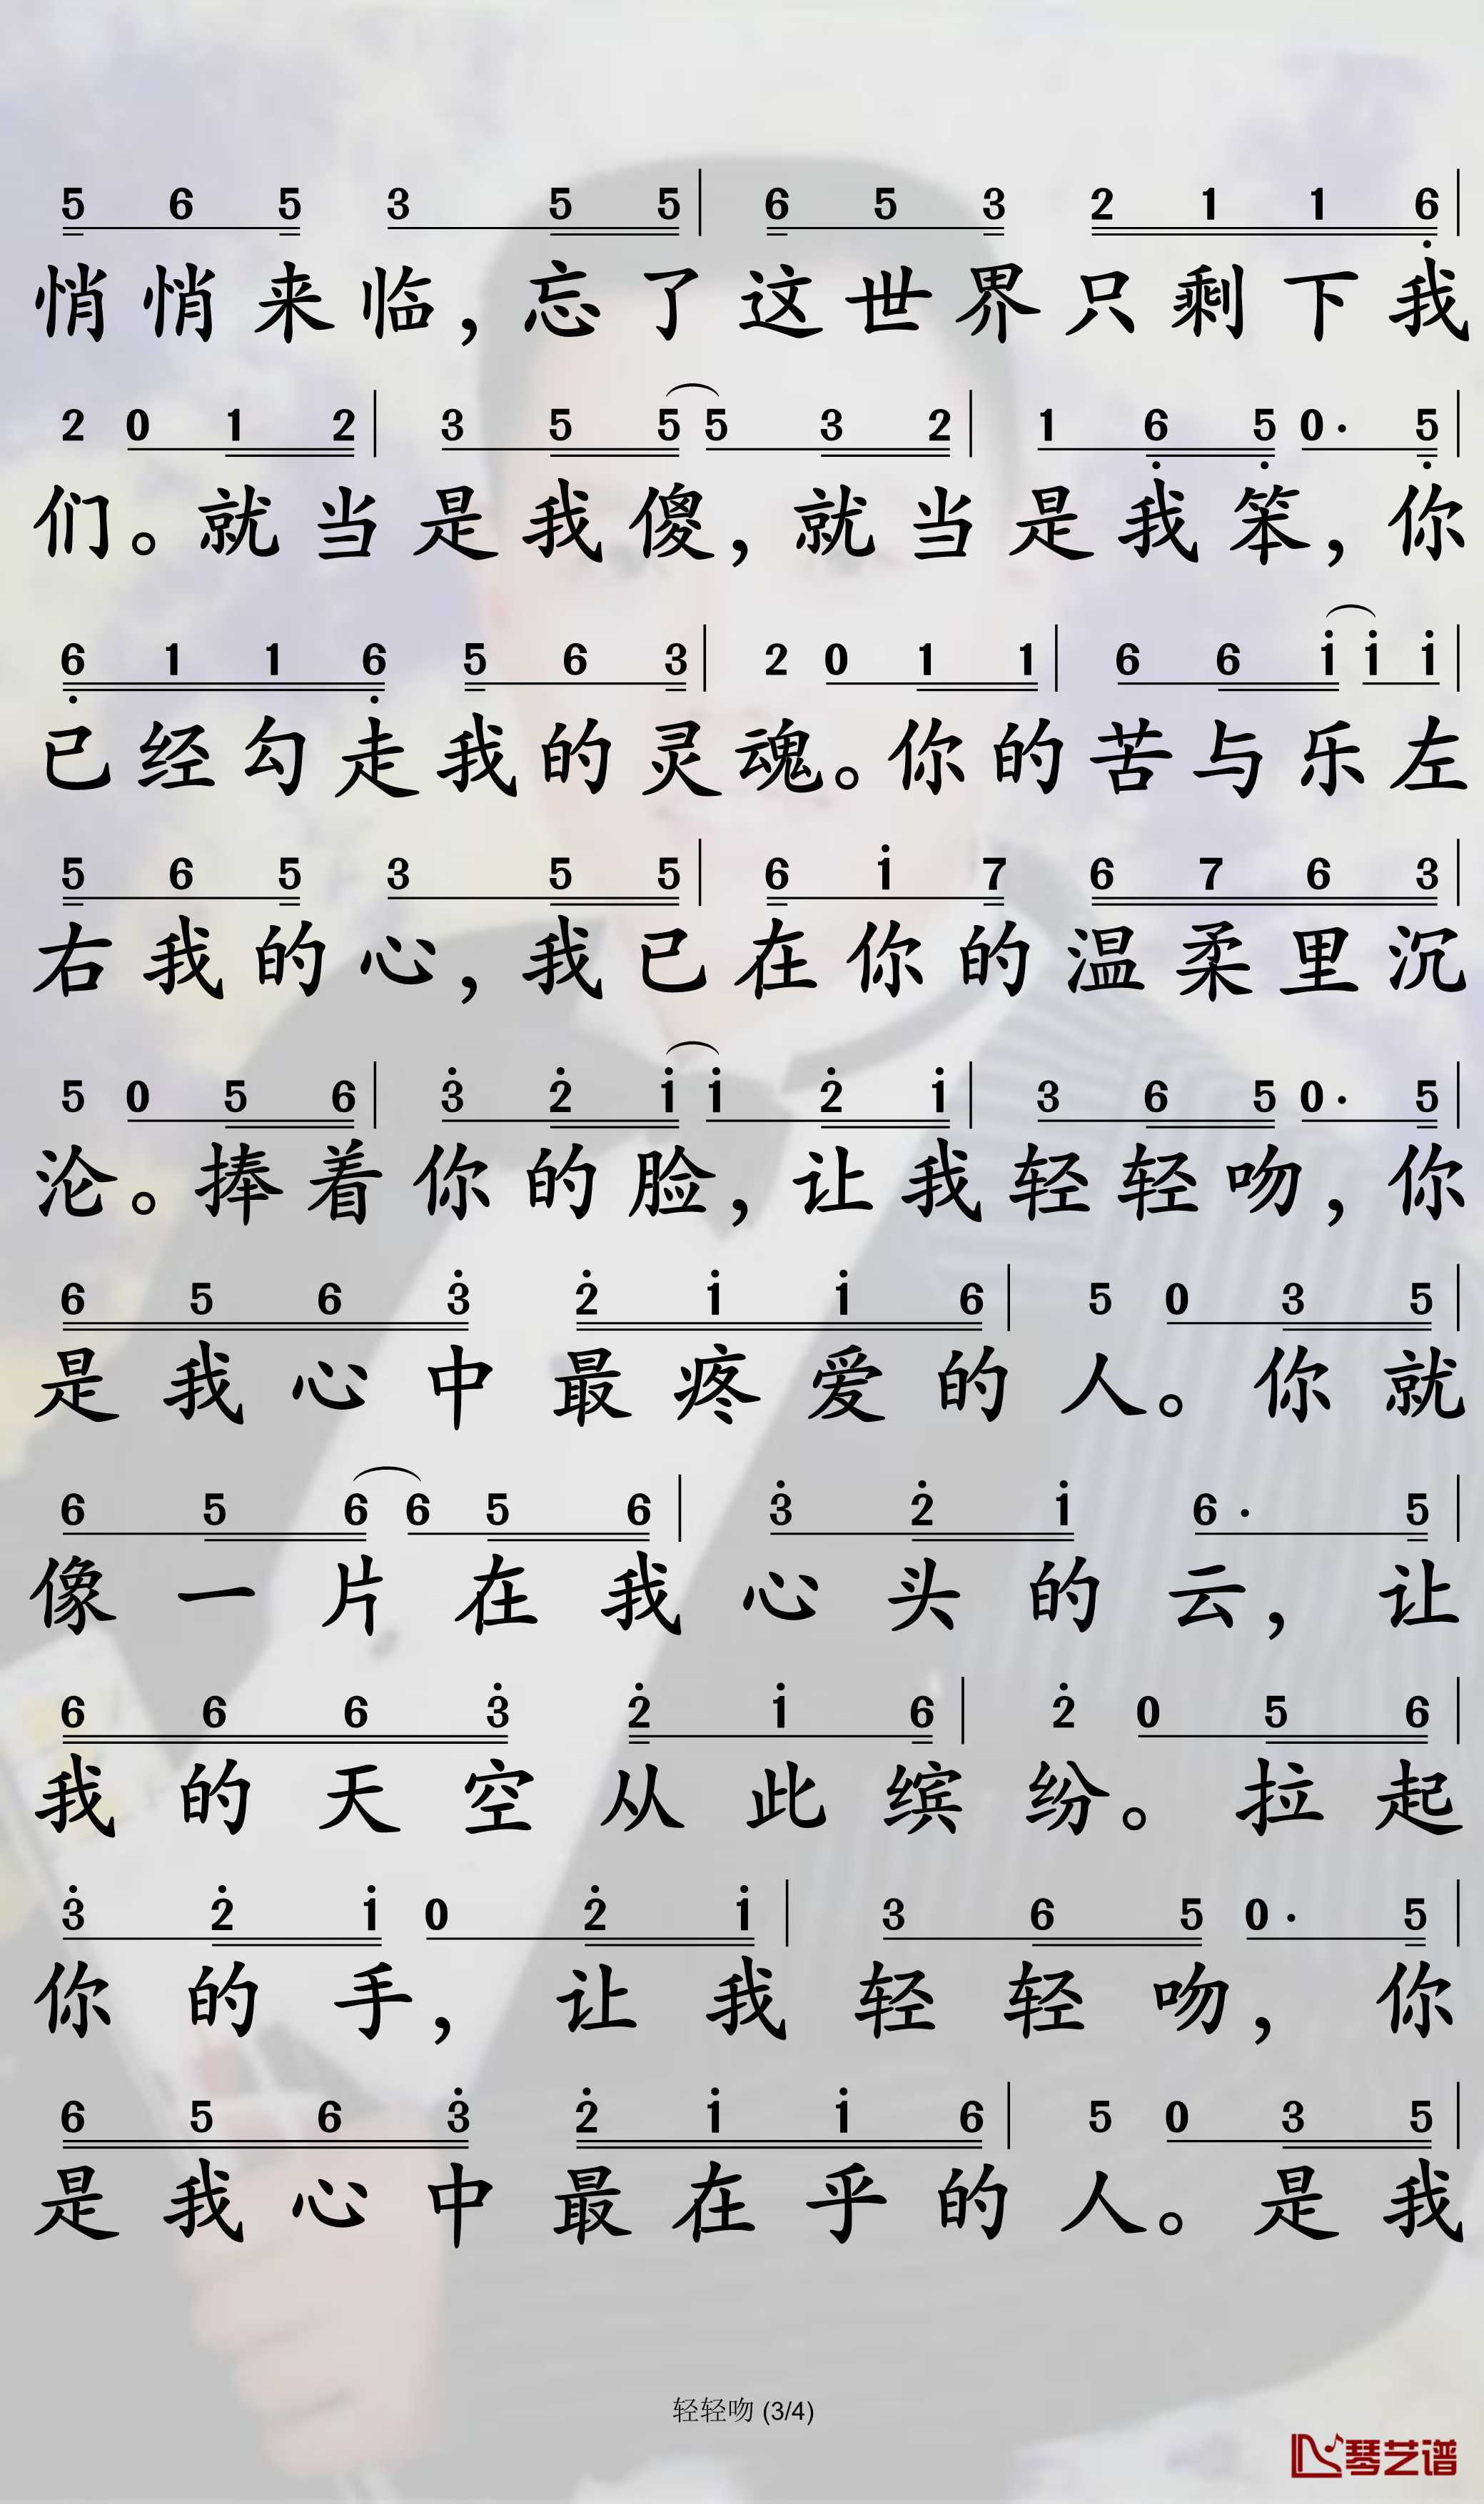 5 6 5 3 5 5 | 6 5 3 2 1 1 6̣ |
悄悄来临,忘了这世界只剩下我
2 0 1 2 | 3 5 5 5 3 2 | 1 6̣ 5̣ 0· 5̣ |
们。就当是我傻,就当是我笨,你
6̣ 1 1 6̣ 5 6 3 | 2 0 1 1 | 6 6 i i i |
已经勾走我的灵魂。你的苦与乐左
5 6 5 3 5 5 | 6 i 7 6 7 6 3 |
右我的心,我已在你的温柔里沉
5 0 5 6 | 3̇ 2̇ i i 2̇ i | 3 6 5 0· 5 |
沦。捧着你的脸,让我轻轻吻,你
6 5 6 3̇ 2̇ i i 6 | 5 0 3 5 |
是我心中最疼爱的人。你就
6 5 6 6 5 6 | 3̇ 2̇ i 6· 5 |
像一片在我心头的云,让
6 6 6 3̇ 2̇ i 6 | 2̇ 0 5 6 |
我的天空从此缤纷。拉起
3̇ 2̇ i 0 2̇ i | 3 6 5 0· 5 |
你的手,让我轻轻吻,你
6 5 6 3̇ 2̇ i i 6 | 5 0 3 5 |
是我心中最在乎的人。是我
轻轻吻 (3/4)
琴艺谱